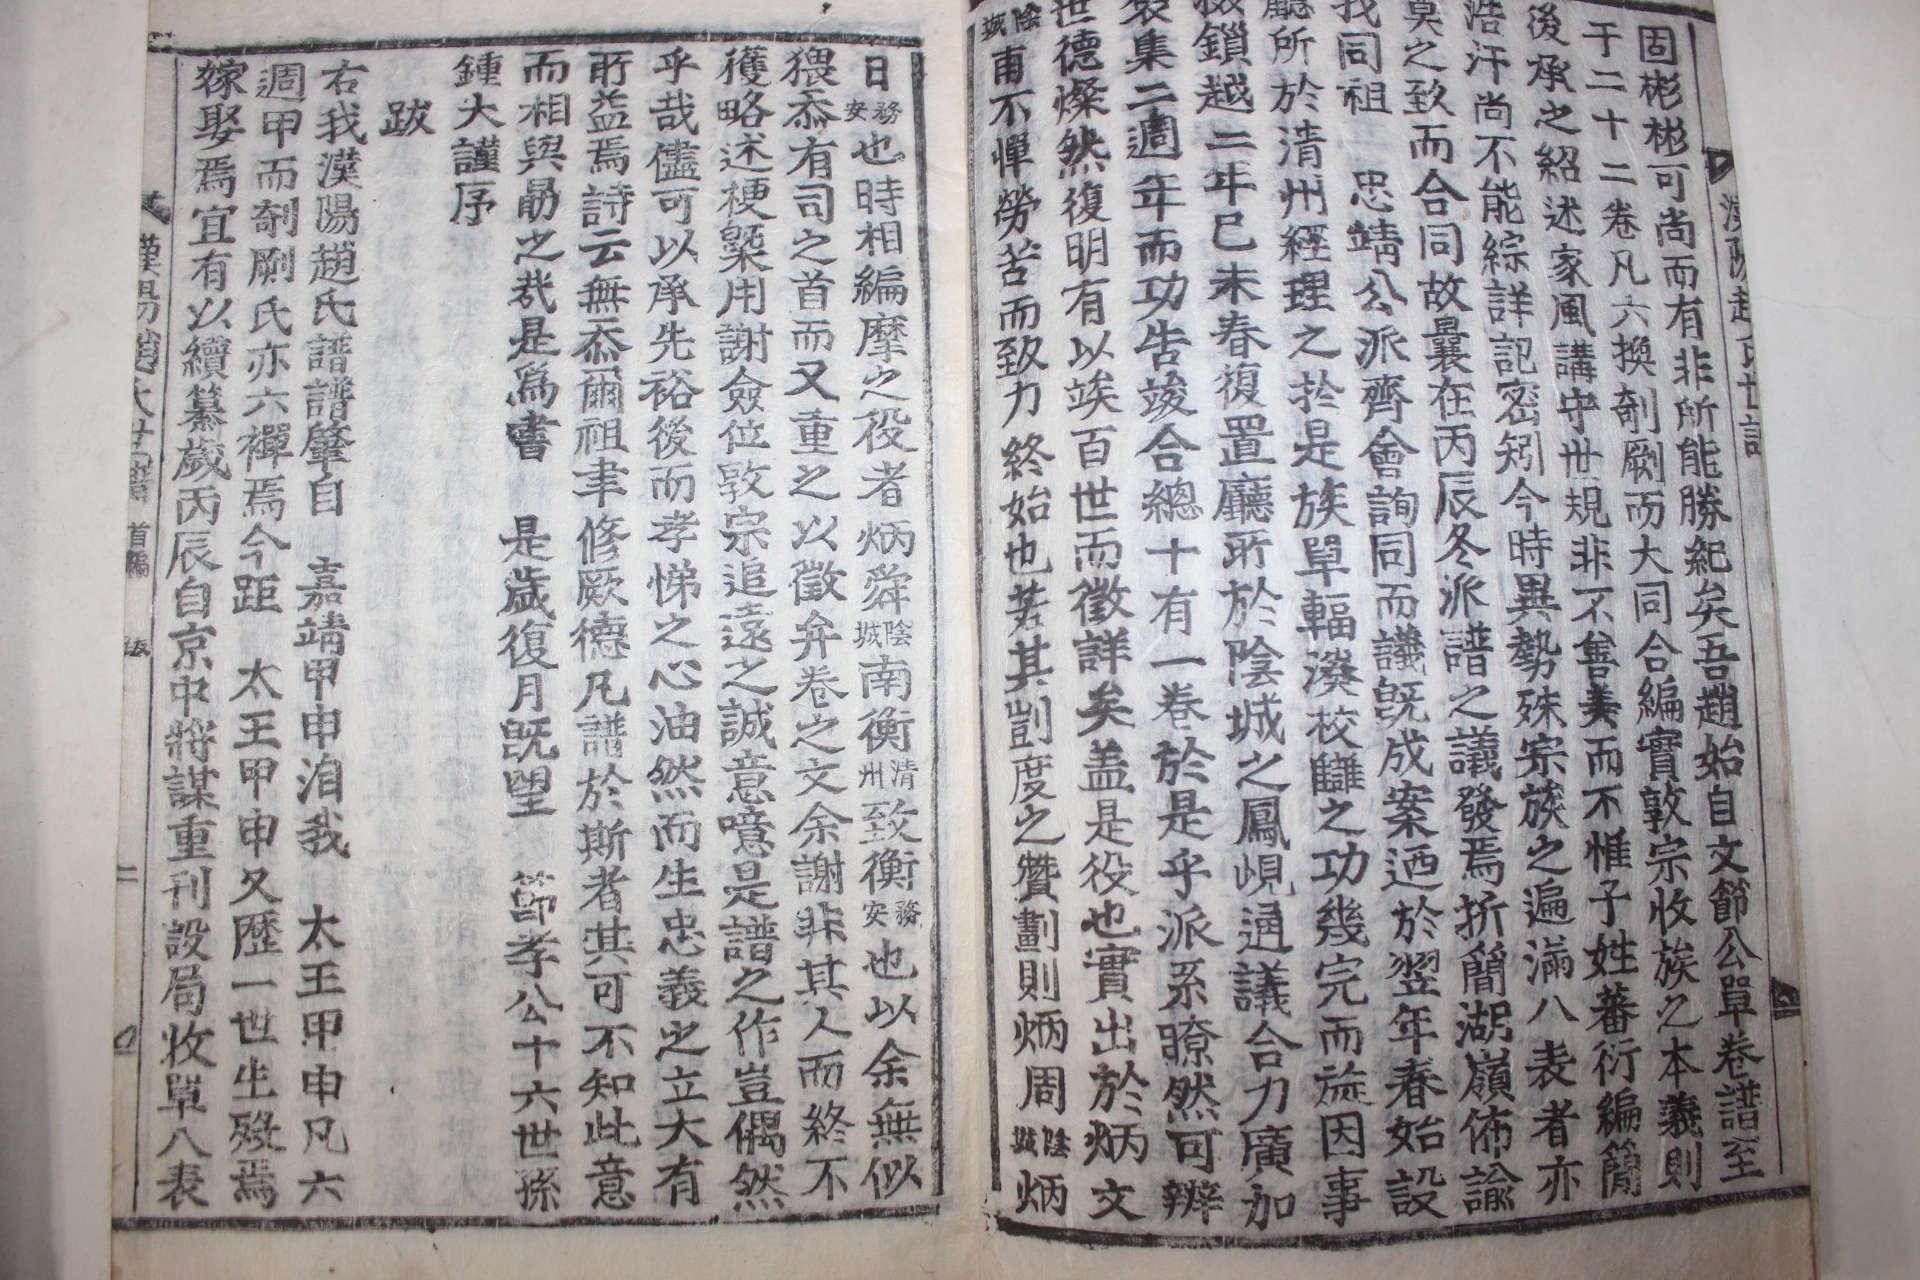 固彬彬可尚而有非所能勝紀矣吾趙始自文節公單卷譜至
于二十二卷凡六換剞劂而大同合編實敦宗收族之本義則
後承之紹述家風講守世規非不雋美而不惟子姓蕃衍編簡
浩汗尚不能綜詳記密矧今時異勢殊宗族之遍滿八表者亦
莫之致而合同故曩在丙辰冬派譜之議發焉折簡湖嶺佈諭
我同祖 忠靖公派齊會詢同而議既成案迺於翌年春始設
廳所於清州經理之於是族單輻湊校讎之功幾完而旋因事
掇鎖越二年己未春復置廳所於陰城之鳳峴通議合力廣加
裒集二週年而功告竣合總十有一卷於是乎派系瞭然可辨
世德燦然復明有以竢百世而徵詳矣盖是役也實出於炳文
陰城 南不憚勞苦而致力終始也若其剴度之贊劃則炳周 陰城 炳
漢陽趙氏世譜
日 務安 也時相編摩之役者炳舜 陰城 南衡 清州 致衡 務安 也以余無似
猥忝有司之首而又重之以徵弁卷之文余謝非其人而終不
獲略述梗槩用謝僉位敦宗追遠之誠意噫是譜之作豈偶然
乎哉儘可以承先裕後而孝悌之心油然而生忠義之立大有
所益焉詩云無忝爾祖聿修厥德凡譜於斯者其可不知此意
而相與勗之哉是爲書 是歲復月旣望 節孝公十六世孫
鍾大謹序
跋
右我漢陽趙氏譜譜肇自 嘉靖甲申洎我 太王甲申凡六
週甲而剞劂氏亦六禪焉今距 太王甲申又歷一世生歿焉
嫁娶焉宜有以續纂歲丙辰自京中將謀重刊設局收單八表
漢陽趙氏世譜 首編 跋 二